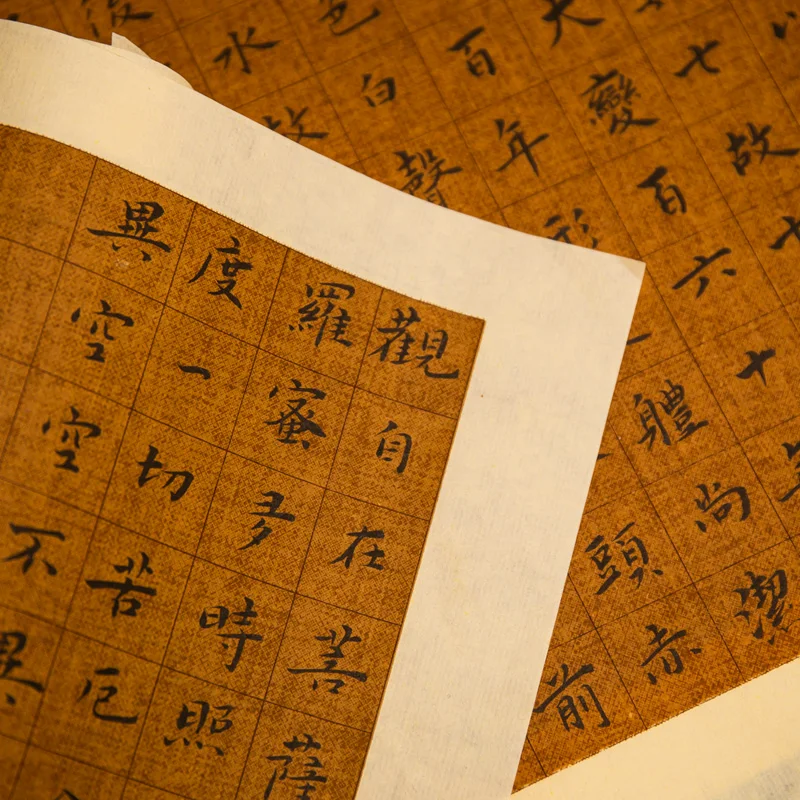 觀自在菩薩
羅蜜多時照
度一切苦厄
異空空不異
七故
大變百六十年
百年形體尚潔
色白聲頭赤
水故前
後